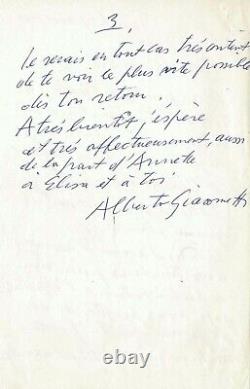 3.
Je serais en tout cas très content
de te voir le plus vite possible
dès ton retour.
A très bientôt, j'espère
et très affectueusement, aussi
de la part d'Annette
à Elisa et à toi
Alberto Giacometti
© ebay.com